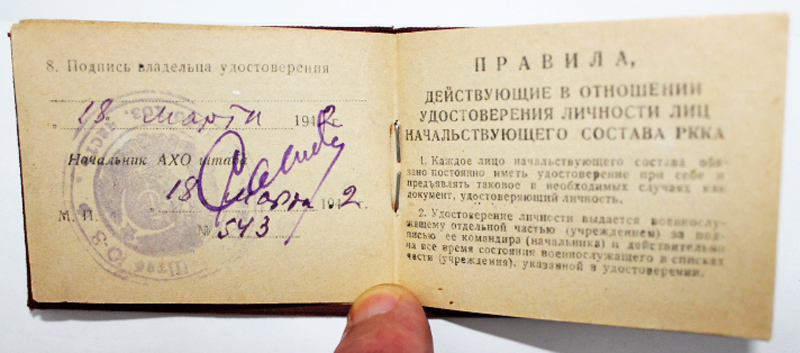 8. Подпись владельца удостоверения
„18“ марта 1942г.
Начальник АХО штаба
„18“ марта 1942г.
М. П.
№ 543
Штаб
ПРАВИЛА,
ДЕЙСТВУЮЩИЕ В ОТНОШЕНИИ
УДОСТОВЕРЕНИЯ ЛИЧНОСТИ ЛИЦ
НАЧАЛЬСТВУЮЩЕГО СОСТАВА РККА
1. Каждое лицо начальствующего состава обя-
зано постоянно иметь удостоверение при себе и
предъявлять таковое в необходимых случаях как
документ, удостоверяющий личность.
2. Удостоверение личности выдается военнослу-
жащему отдельной частью (учреждением) за под-
писью ее командира (начальника) и действительно
на все время состояния военнослужащего в списках
части (учреждения), указанной в удостоверении.